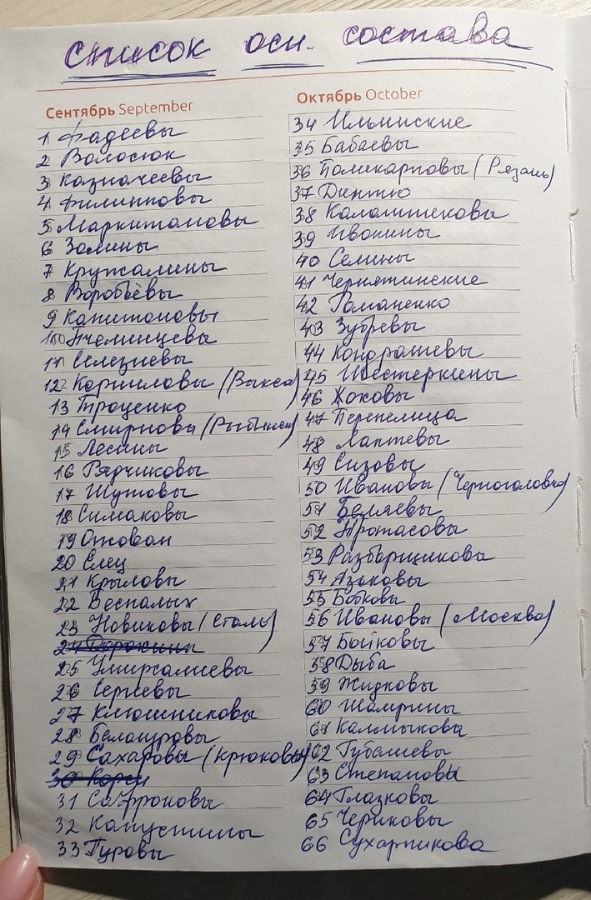 список осн. состава
Сентябрь September
1 Фадеевы
2 Волосюк
3 Казначеевы
4 Филипповы
5 Маркитановы
6 Золины
7 Кружалины
8 Воробьёвы
9 Капитоновы
10 Пчелинцевы
11 Селезневы
12 Корниловы (Выкса)
13 Троценко
14 Смирновы
15 Лесины
16 Рядчиковы
17 Шутовы
18 Симаковы
19 Отован
20 Елец
21 Крыловы
22 Беспалых
23 Новиковы (Сталь)
24 Дорохины
25 Умиралиевы
26 Сергеевы
27 Ключниковы
28 Белошуровы
29 Сахаровы (Крюковы)
30
31 Сафроновы
32 Капустины
33 Гуровы
Октябрь October
34 Ильинские
35 Бабаевы
36 Поликарповы (Рязань)
37 Дентю
38 Калашековы
39 Ивокины
40 Селины
41 Чернятинские
42 Романенко
43 Зубревы
44 Кондрашевы
45 Шестеркины
46 Жоховы
47 Перепелица
48 Лаптевы
49 Сизовы
50 Ивановы (Черноголовка)
51 Беляевы
52 Протасовы
53 Разборщикова
54 Азаковы
55 Боковы
56 Ивановы (Москва)
57 Бойковы
58 Дыба
59 Жидковы
60 Шамрины
61 Калмыкова
62 Губалиевы
63 Степановы
64 Глазковы
65 Чериковы
66 Сухарникова